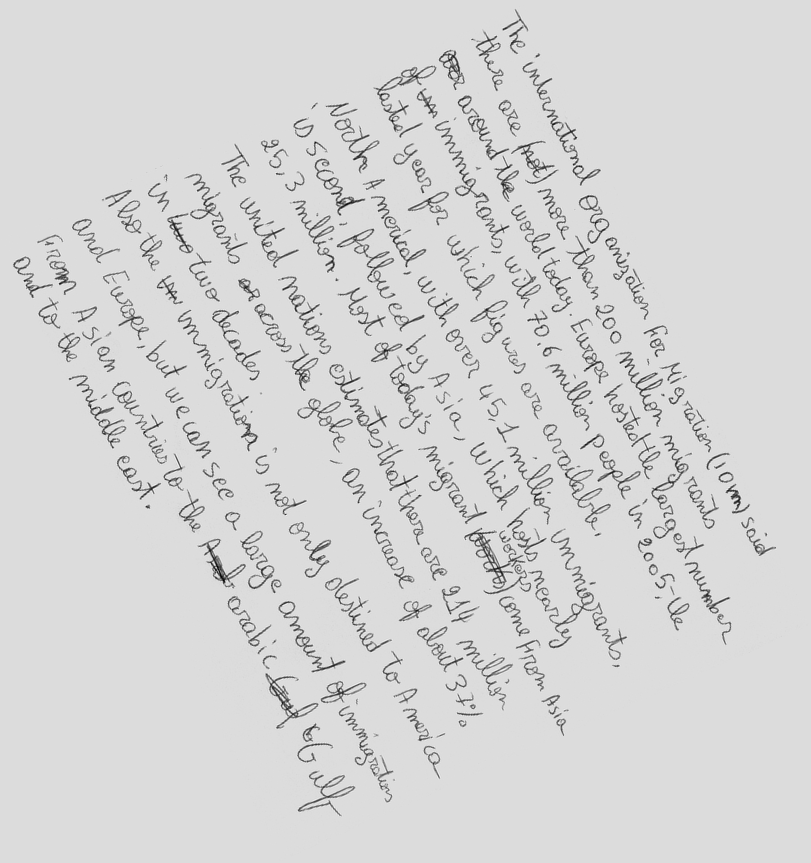 The international organization For Migration (IOM) said
there are more than 200 million migrants
around the world today. Europe hosted the largest number
of immigrants, with 70.6 million people in 2005, the
lasted year for which figures are available,
North America, with over 45,1 million immigrants,
is second, followed by Asia, which hosts nearly
25,3 million. Most of today's migrant workers come From Asia
The united nations estimates that there are 214 million
migrants across the globe, an increase of about 37%
in two decades.
Also the immigration is not only destined to America
and Europe, but we can see a large amount of immigrations
From Asian countries to the arabic Gulf
and to the middle east.